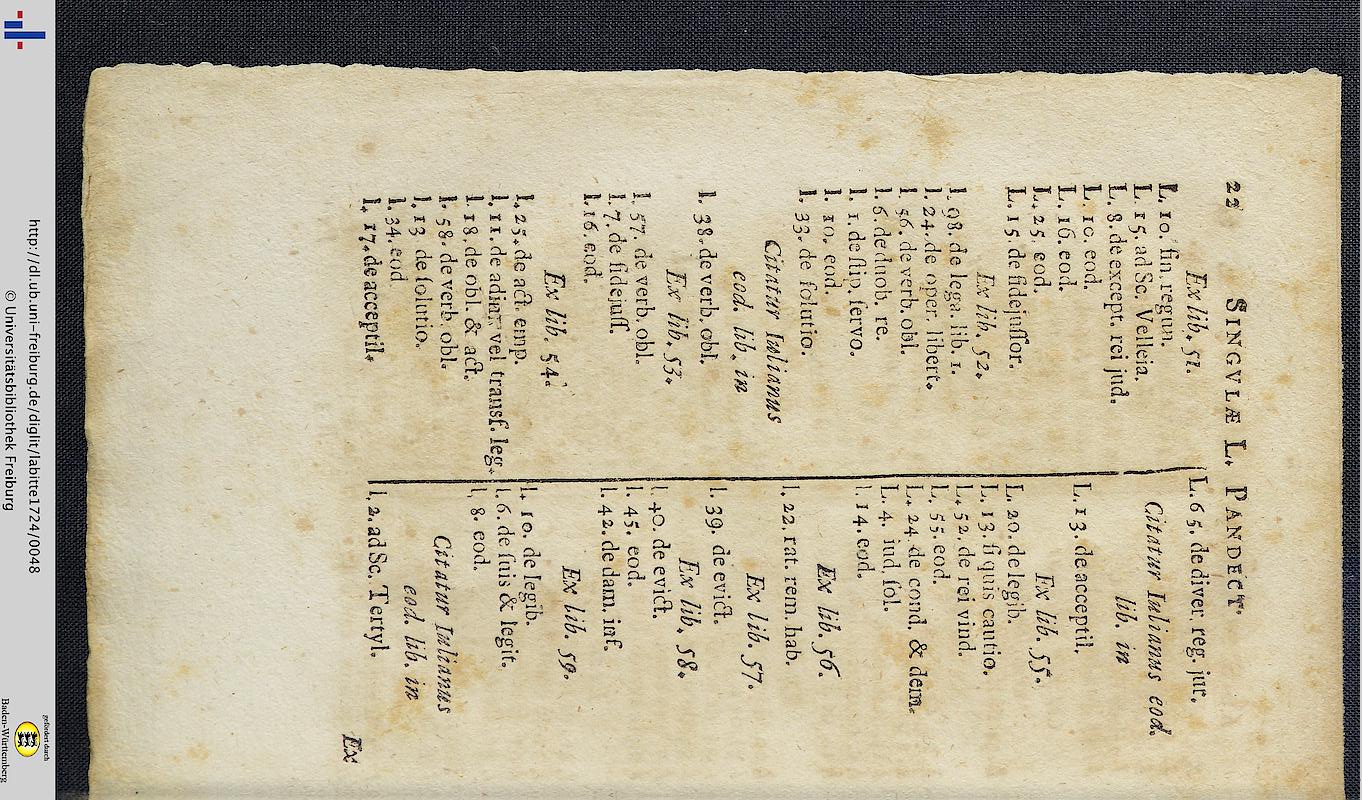 22 SINGVLÆ L. PANDECT.
Ex lib. 51.
L. 10. fin. regun.
L. 15. ad Sc. Velleia.
L. 8. de except. rei jud.
L. 10. eod.
L. 16. eod.
L. 25. eod.
L. 15. de fidejuſſor.
Ex lib. 52.
l. 98. de lega. lib. 1.
l. 24. de oper. libert.
l. 56. de verb. obl.
l. 6. de duob. re.
l. 1. de ſtip. ſervo.
l. 10. eod.
l. 33. de ſolutio.
Citatur Iulianus
eod. lib. in
l. 38. de verb. obl.
Ex lib. 53.
l. 57. de verb. obl.
l. 7. de fidejuſſ.
l. 16. eod.
Ex lib. 54.
l. 25. de act. emp.
l. 11. de adim. vel transf. leg.
l. 18. de obl. & act.
l. 58. de verb. obl.
l. 13. de ſolutio.
l. 34. eod.
l. 17. de acceptil.
L. 65. de diver. reg. jur.
Citatur Iulianus eod.
lib. in
L. 13. de acceptil.
Ex lib. 55.
L. 20. de legib.
L. 13. ſi quis cautio.
L. 52. de rei vind.
L. 55. eod.
L. 24. de cond. & dem.
L. 4. iud. ſol.
l. 14. eod.
Ex lib. 56.
l. 22. rat. rem. hab.
Ex lib. 57.
l. 39. de evict.
Ex lib. 58.
l. 40. de evict.
l. 45. eod.
l. 42. de dam. inf.
Ex lib. 59.
l. 10. de legib.
l. 6. de ſuis & legit.
l. 8. eod.
Citatur Iulianus
eod. lib. in
l. 2. ad Sc. Tertyl.
Ex
http://dl.ub.uni-freiburg.de/diglit/labitte1724/0048
© Universitätsbibliothek Freiburg
gefördert durch
Baden-Württemberg